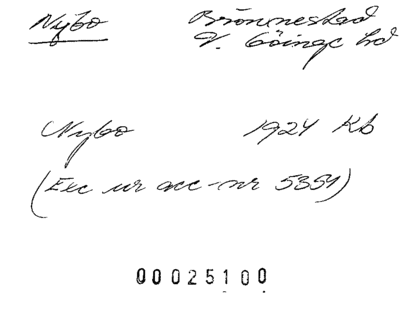 Nybo Brönnestad
V. Göinge hd
Nybo 1924 Kb
(Exc ur acc-nr 5354)
00025100